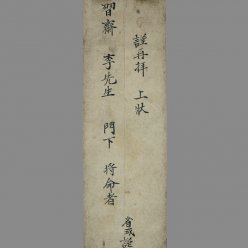 謹再拜 上狀
省式謹
習齋 李先生 門下 將命者